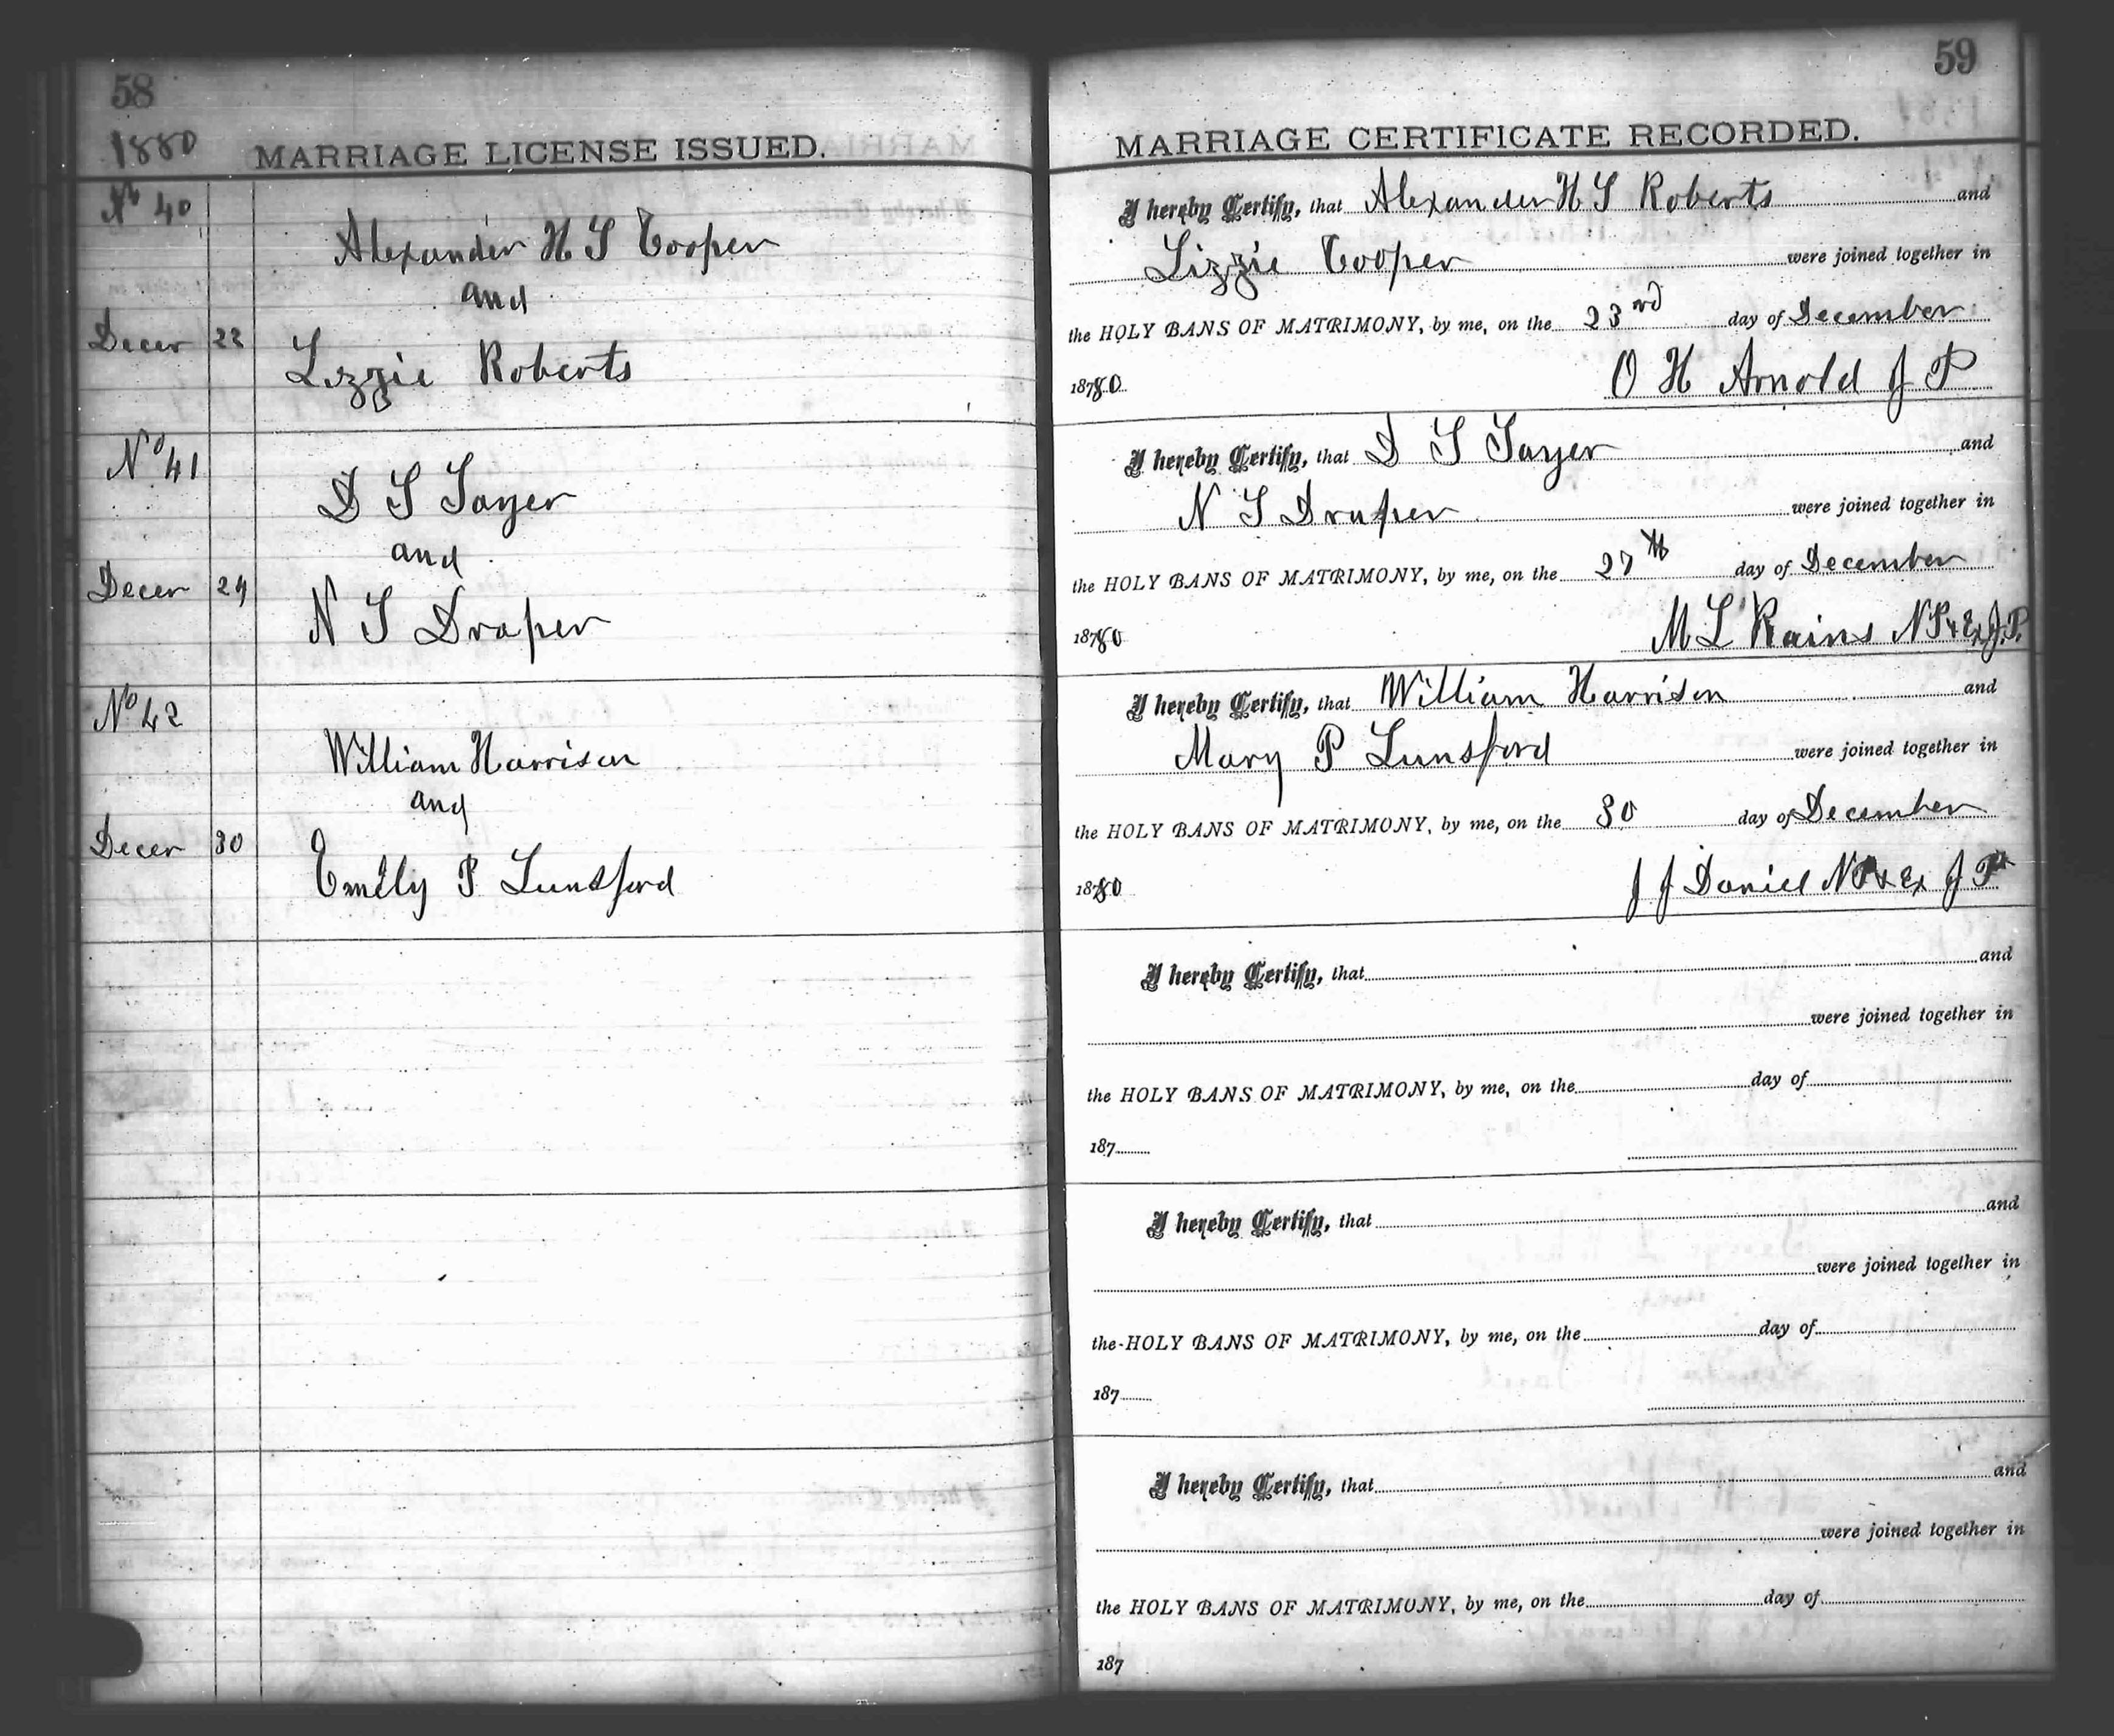 58
1880
MARRIAGE LICENSE ISSUED.
No 40
Alexander H S Cooper
and
Decer 22 Lizzie Roberts
No 41
D S Sayer
and
Decer 24 N S Draper
No 42
William Harrison
and
Decer 30 Emily P Lunsford
59
MARRIAGE CERTIFICATE RECORDED.
I hereby Certify, that Alexander H S Roberts and
Lizzie Cooper were joined together in
the HOLY BANS OF MATRIMONY, by me, on the 23rd day of December
18780
O H Arnold J P
I hereby Certify, that D S Sayer and
N S Draper were joined together in
the HOLY BANS OF MATRIMONY, by me, on the 27th day of December
18780
M L Rains N P & Ex J.P.
I hereby Certify, that William Harrison and
Mary P Lunsford were joined together in
the HOLY BANS OF MATRIMONY, by me, on the 30 day of December
18780
J J Daniel N P & Ex J P
I hereby Certify, that and
were joined together in
the HOLY BANS OF MATRIMONY, by me, on the day of
187
I hereby Certify, that and
were joined together in
the HOLY BANS OF MATRIMONY, by me, on the day of
187
I hereby Certify, that and
were joined together in
the HOLY BANS OF MATRIMONY, by me, on the day of
187